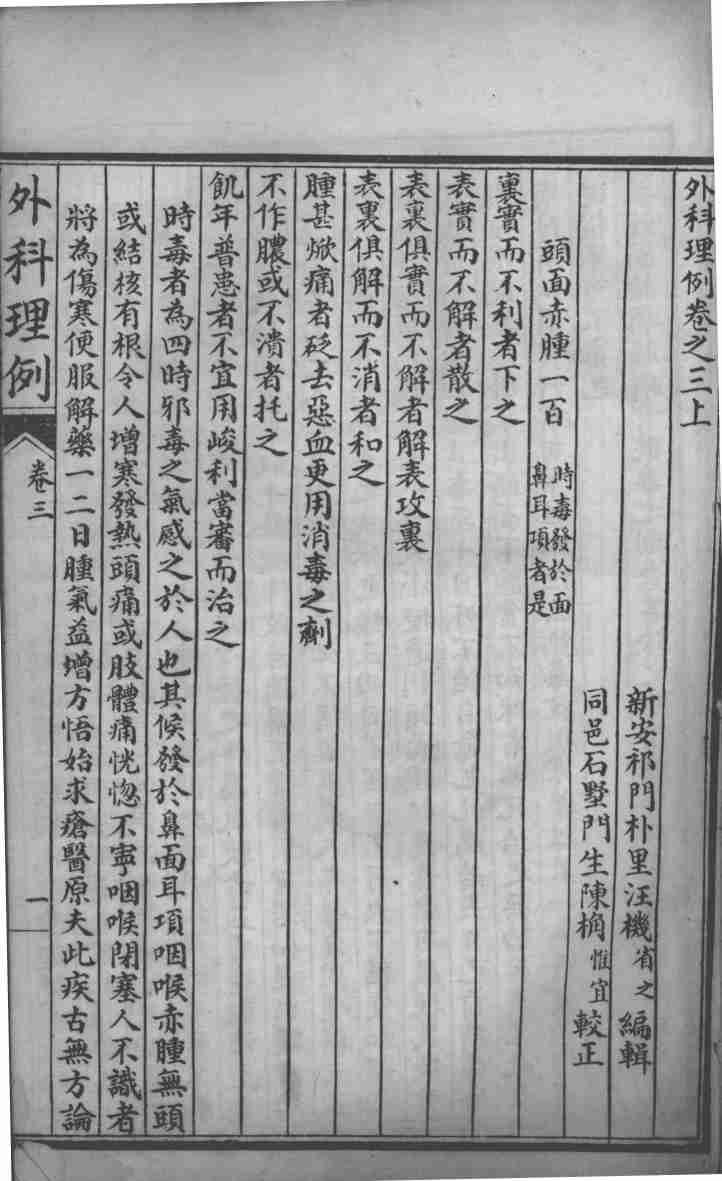 外科理例卷之三上
新安祁門朴里汪機省之編輯
同邑石墅門生陳桷惟宜較正
頭面赤腫一百 時毒發於面鼻耳項者是
裏實而不利者下之
表實而不解者散之
表裏俱實而不解者解表攻裏
表裏俱解而不消者和之
腫甚焮痛者砭去惡血更用消毒之劑
不作膿或不潰者托之
飢年普患者不宜用峻利當審而治之
時毒者為四時邪毒之氣感之於人也其候發於鼻面耳項咽喉赤腫無頭
或結核有根令人增寒發熱頭痛或肢體痛恍惚不寧咽喉閉塞人不識者
將為傷寒便服解藥一二日腫氣益增方悟始求瘡醫原夫此疾古無方論
外科理例
卷三
一